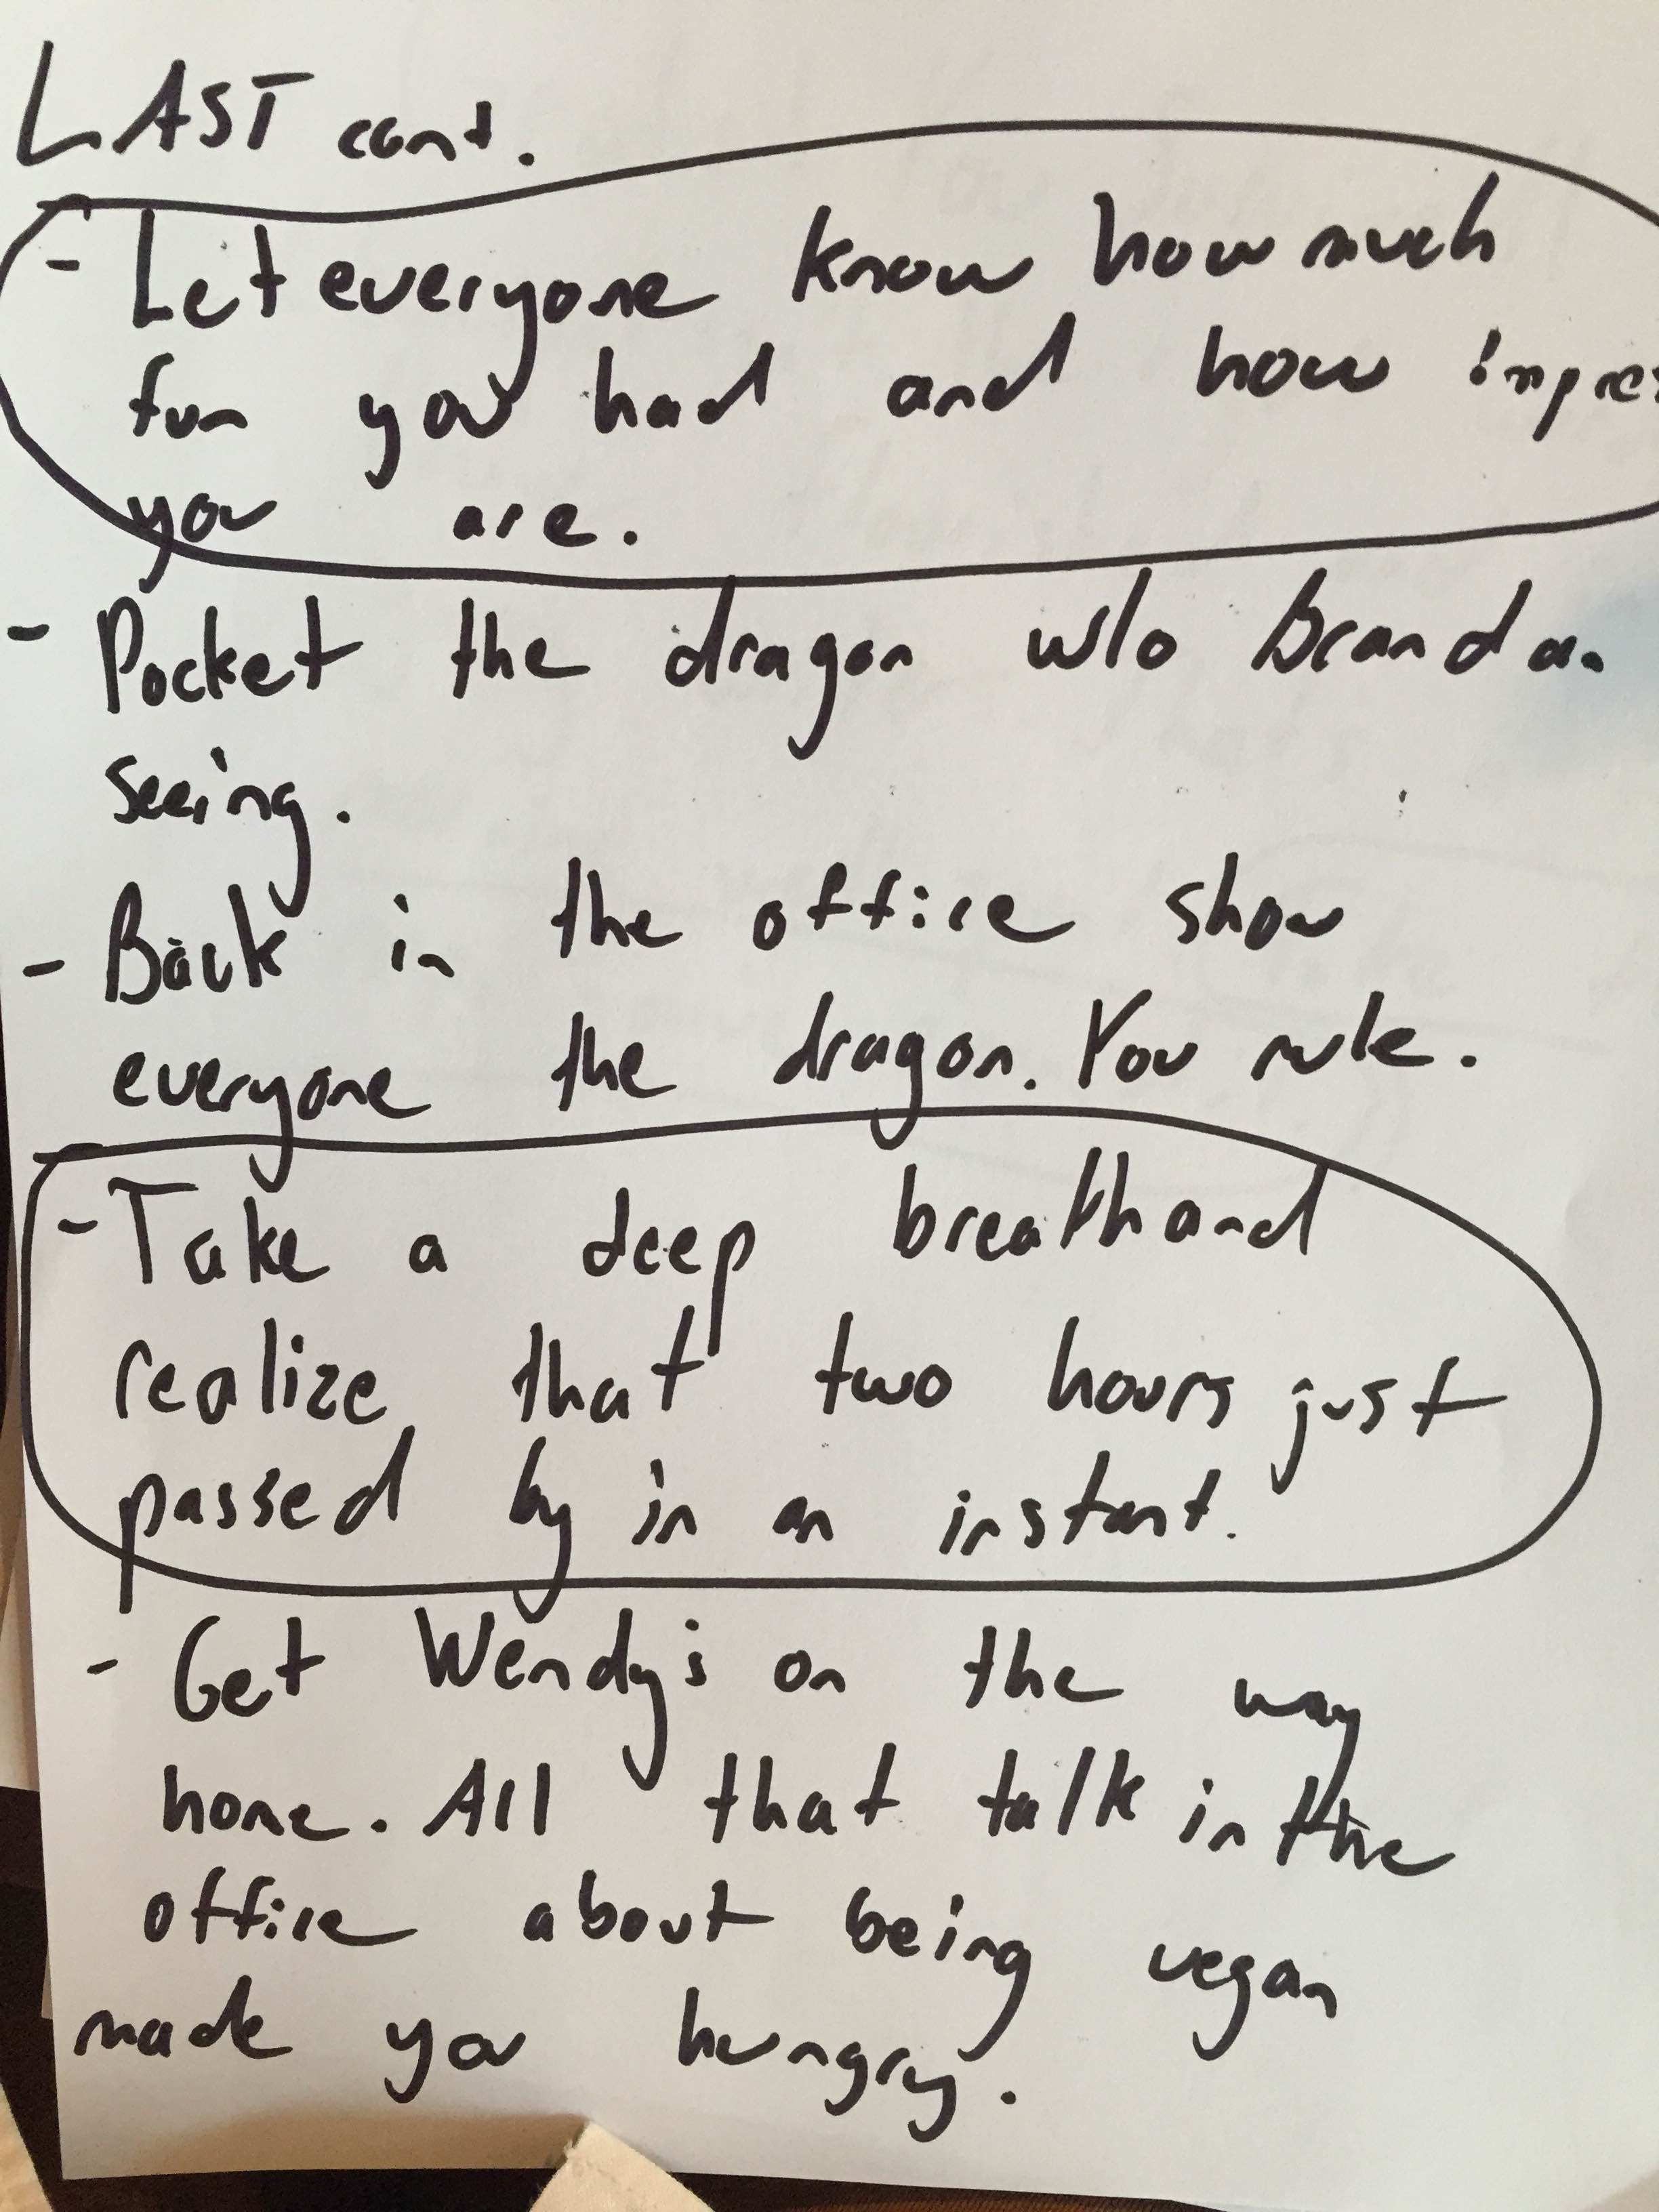 LAST cont.
- Let everyone know how much
fun you had and how impres
you are.
- Pocket the dragon w/o Brandan
seeing.
- Back in the office show
everyone the dragon. You rule.
- Take a deep breath and
realize that two hours just
passed by in an instant.
- Get Wendy's on the way
home. All that talk in the
office about being vegan
made you hungry.